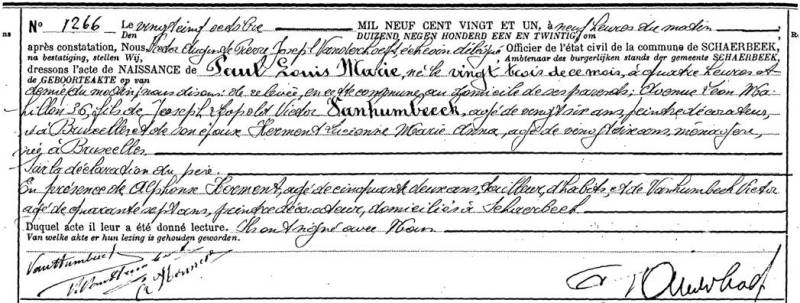 N° 1266 Le vingt cinq octobre MIL NEUF CENT VINGT ET UN, à neuf heures du matin
Den DUIZEND NEGEN HONDERD EEN EN TWINTIG, om
après constatation, Nous Victor Auguste Pierre Joseph échevin délégué Officier de l'état civil de la commune de SCHAERBEEK,
na bestatiging, stellen Wij, Ambtenaar des burgerlijken stands der gemeente SCHAERBEEK,
dressons l'acte de NAISSANCE de Paul Louis Marie, né le vingt trois de ce mois, à quatre heures et
de GEBOORTEAKTE op van
demie du matin, nous disons: de relevée, en cette commune au domicile de ses parents, Avenue Léon Ma-
hillon 36, fils de Joseph Léopold Victor Vanhumbeeck, agé de vingt six ans, peintre décorateur,
né à Bruxelles et de son épouse Hermont Lucienne Marie Anna, agé de vingt six ans, ménagère,
née à Bruxelles
Sur la déclaration du père
En présence de Alphonse Hermont, agé de cinquant deux ans, tailleur d'habits, et de Vanhumbeeck Victor
agé de quarante sept ans, peintre décorateur, domiciliés à Schaerbeek
Duquel acte il leur a été donné lecture. Ils ont signé avec Nous
Van welke akte er hun lezing is gehouden geworden.